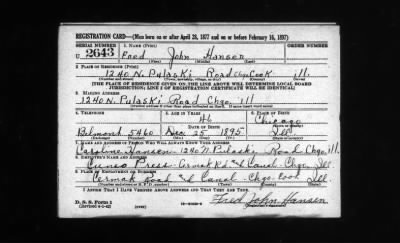 REGISTRATION CARD—(Men born on or after April 28, 1877 and on or before February 16, 1897)
SERIAL NUMBER 1. NAME (Print) ORDER NUMBER
U 2643 Fred John Hansen
2. PLACE OF RESIDENCE (Print)
1240 N. Pulaski Road Chgo Cook Ill.
[THE PLACE OF RESIDENCE GIVEN ON THE LINE ABOVE WILL DETERMINE LOCAL BOARD
JURISDICTION; LINE 2 OF REGISTRATION CERTIFICATE WILL BE IDENTICAL]
3. MAILING ADDRESS
1240 N. Pulaski Road Chgo. Ill.
4. TELEPHONE 5. AGE IN YEARS 6. PLACE OF BIRTH
46 Chicago
DATE OF BIRTH
Belmont 5460 Dec 25 1895 Ill
7. NAME AND ADDRESS OF PERSON WHO WILL ALWAYS KNOW YOUR ADDRESS
Caroline Hansen - 1240 N. Pulaski Road Chgo. Ill.
8. EMPLOYER'S NAME AND ADDRESS
Cuneo Press - Cermak Rd & Canal - Chgo Ill
9. PLACE OF EMPLOYMENT OR BUSINESS
Cermak Road & Canal - Chgo - Cook Ill
I AFFIRM THAT I HAVE VERIFIED ABOVE ANSWERS AND THAT THEY ARE TRUE.
D. S. S. Form 1
Fred John Hansen